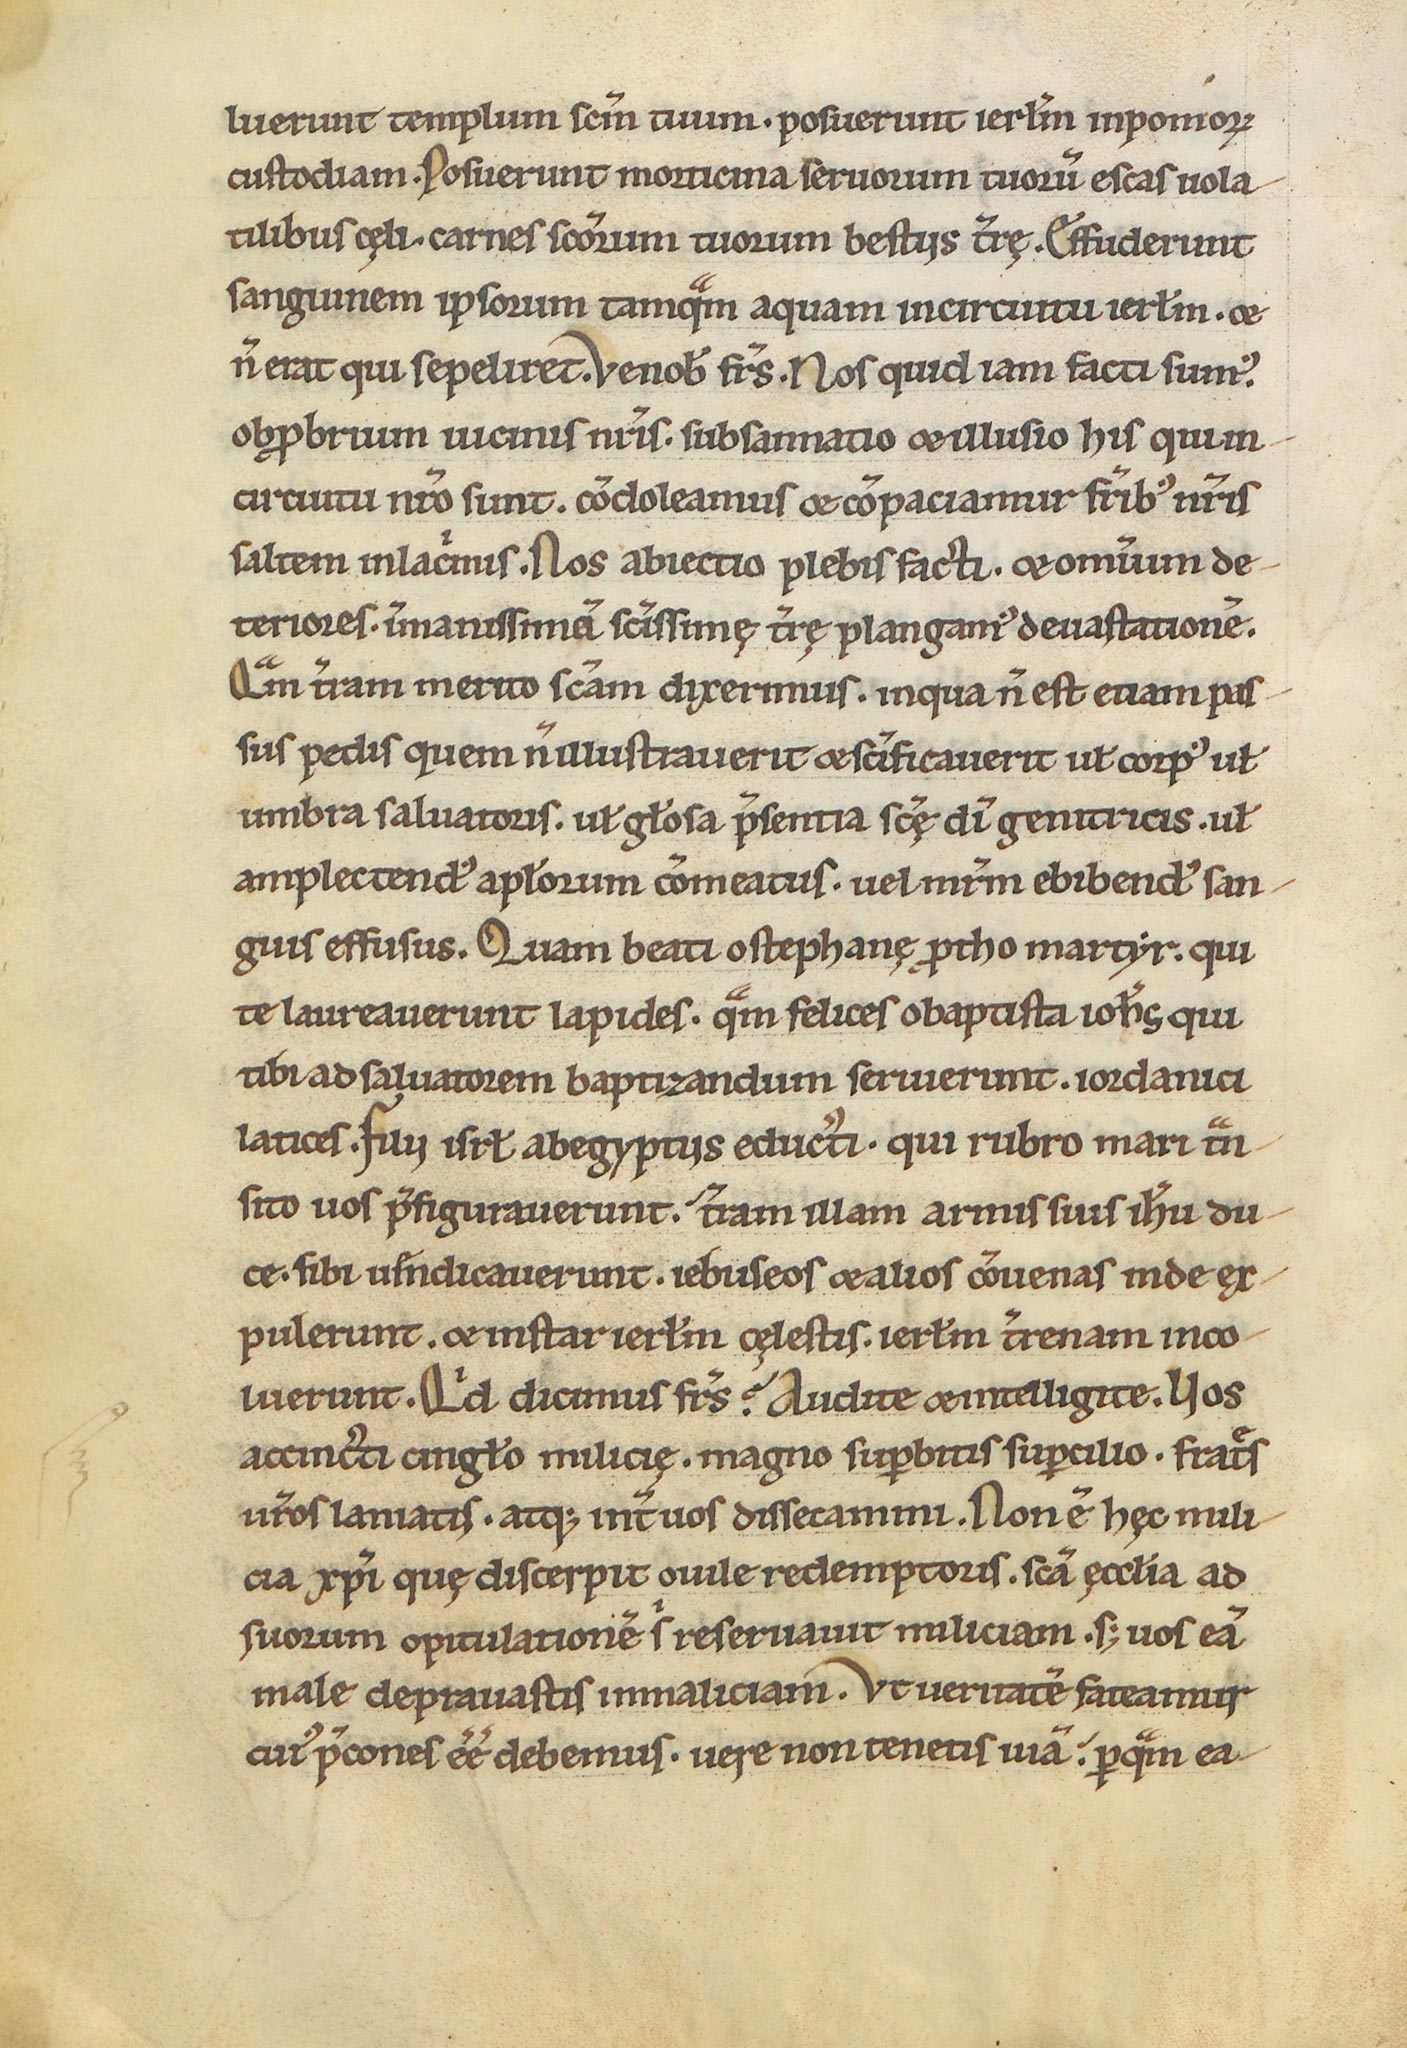 luerunt templum scm̄ tuum. posuerunt ierłm inpomorꝝ
custodiam. Posuerunt morticina seruorum tuorū escas uola
tilibus cęli. carnes scōrum tuorum bestijs tr̄ę. Effuderunt
sanguinem ipsorum tamqᷓm aquam incircuitu ierłm. &
n̄ erat qui sepeliret. Ve nob̄ fr̄s. Nos quid iam facti sumꝰ.
obꝓbrium uicinis nr̄is. subsannatio & illusio his qui in
circuitu nr̄o sunt. cōdoleamus & cōpaciamur fr̄ibꝰ nr̄is
saltem inlacͥmis. Nos abiectio plebis facti. & omīum de
teriores. īmanissimā sc̄issimę tr̄ę plangamꝰ deuastationē.
Qᷓm tr̄am merito sc̄am dixerimus. inqua n̄ est etiam pas
sus pedis quem n̄ illustrauerit & sc̄ificauerit uł corpꝰ uł
umbra saluatoris. uł głosa p̄sentia sc̄ę dī genitricis. uł
amplectendꝰ apłorum cōmeatus. uel mr̄m ebibendꝰ san
guis effusus. Quam beati o stephanę ꝓtho martyr. qui
te laureauerunt lapides. qᷓm felices o baptista ioh̄s qui
tibi ad saluatorem baptizandum seruierunt. iordanici
latices. Filij isrł ab egyptijs educti. qui rubro mari tᷓn
sito uos p̄figurauerunt. tr̄am illam armis suis ih̄u du
ce. sibi uēndicauerunt. iebuseos & alios cōuenas inde ex
pulerunt. & instar ierłm cęlestis. ierłm tr̄enam inco
luerunt. Qͥd dicimus fr̄s? Audite & intelligite. Uos
accincti cingło milicię. magno suꝑbitis suꝑcilio. frat̄s
ur̄os laniatis. atqꝫ int̄ uos dissecamini. Non ē hęc mili
cia xpī quę discerpit ouile redemptoris. scā ęccłia ad
suorum opitulationē sͥ reseruauit miliciam. sꝫ uos eā
male deprauastis inmaliciam. Vt ueritatē fateamur
cuiꝰ p̄cones ēē debemus. uere non tenetis uiā. ꝑqᷓm ea